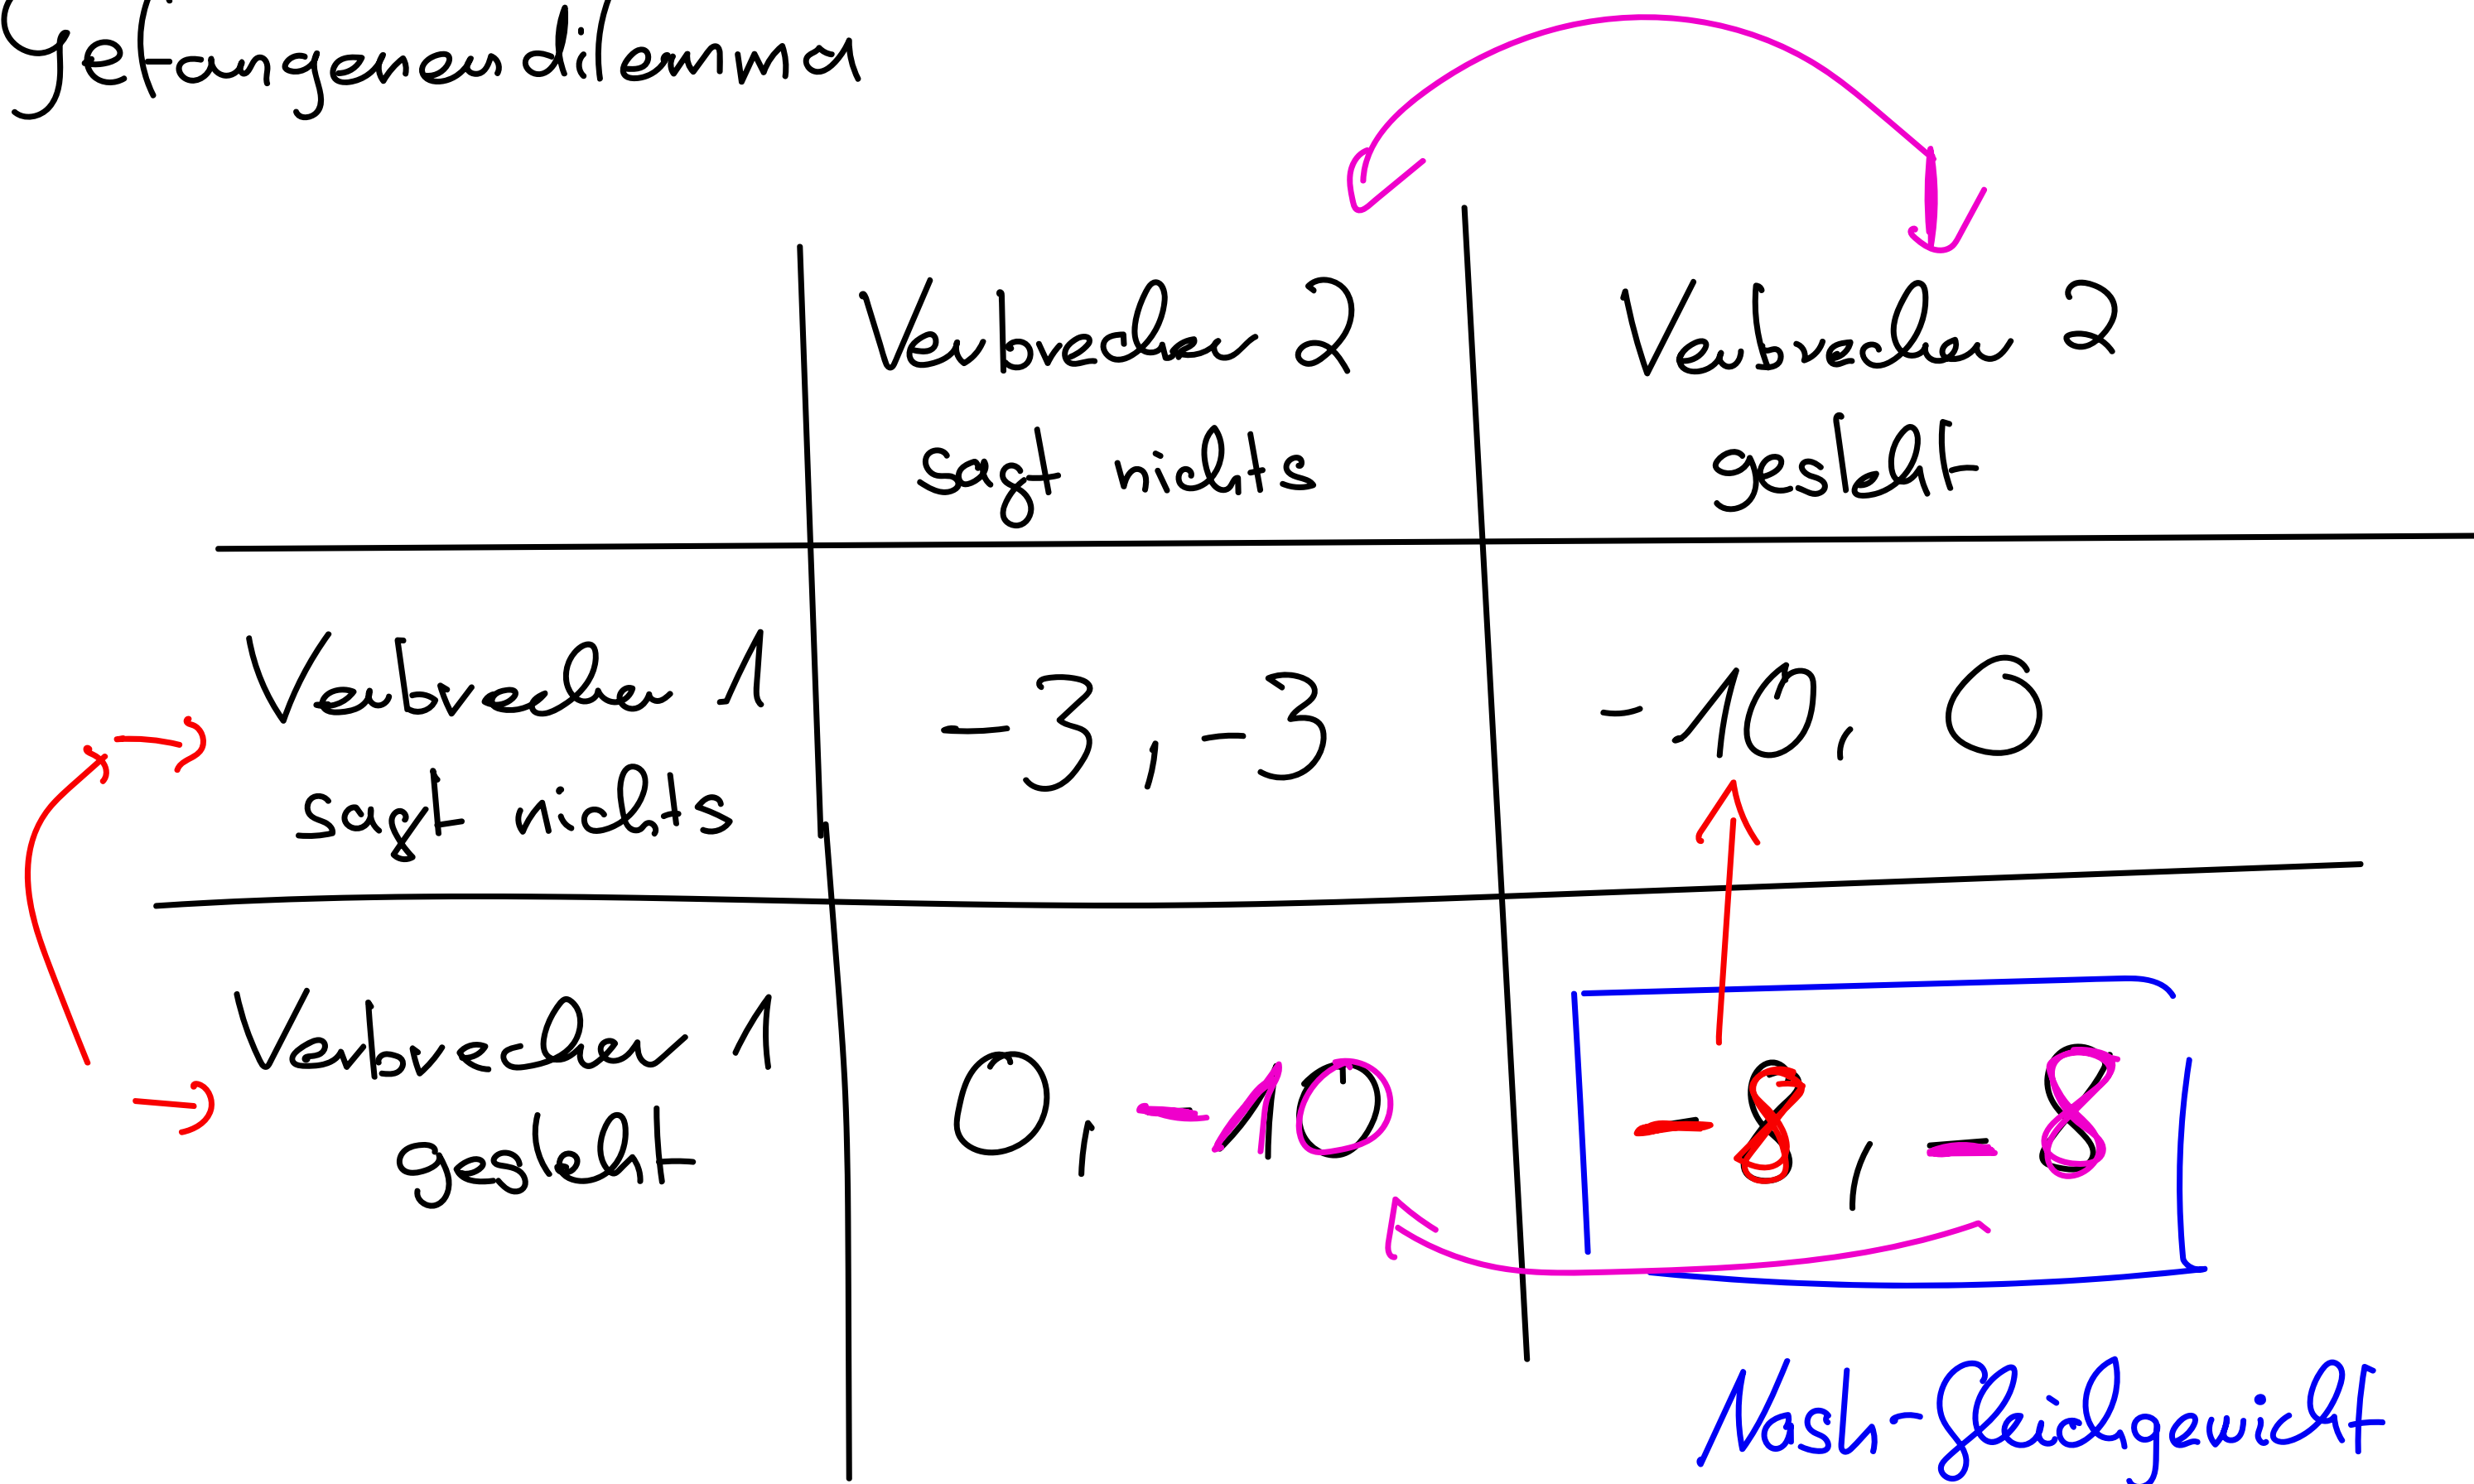 Gefangenendilemma
Verbrecher 2
sagt nichts
Verbrecher 2
gesteht
Verbrecher 1
sagt nichts
-3, -3
-10, 0
Verbrecher 1
gesteht
0, -10
-8, -8
Nash-Gleichgewicht